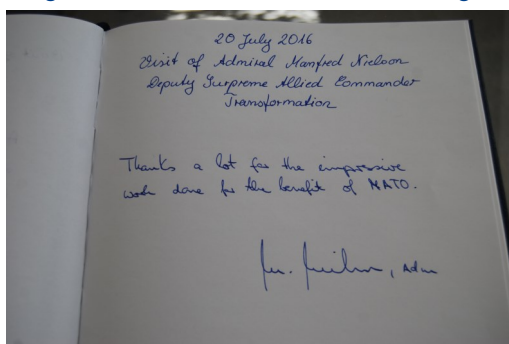 20 July 2016
Visit of Admiral Manfred Nielson
Deputy Surpreme Allied Commander
Transformation
Thanks a lot for the impressive
work done for the benefit of NATO.
, Adm